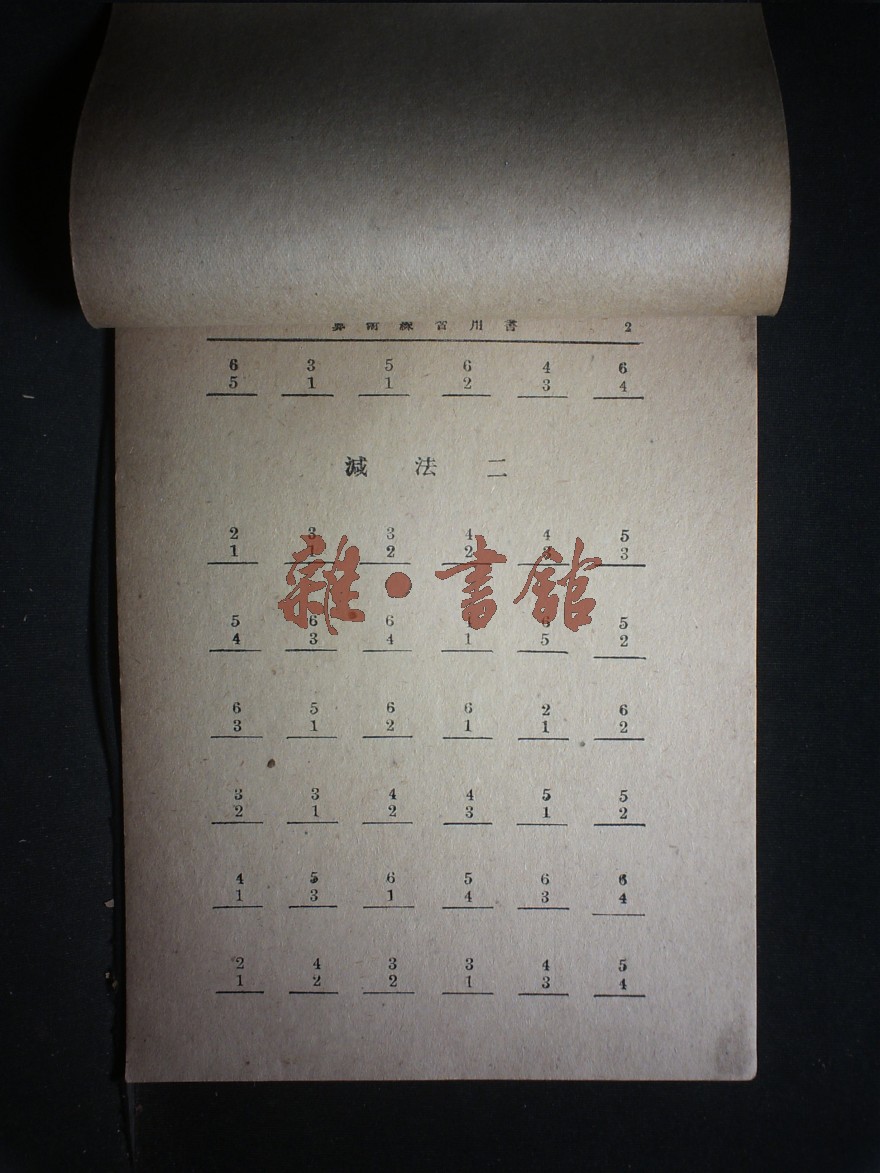 算術練習用書 2
6 3 5 6 4 6
5 1 1 2 3 4
減法二
2 3 3 4 4 5
1 1 2 2 3 3
雜·書館
5 6 6 4 6 5
4 3 4 1 5 2
6 5 6 6 2 6
3 1 2 1 1 2
3 3 4 4 5 5
2 1 2 3 1 2
4 5 6 5 6 6
1 3 1 4 3 4
2 4 3 3 4 5
1 2 2 1 3 4